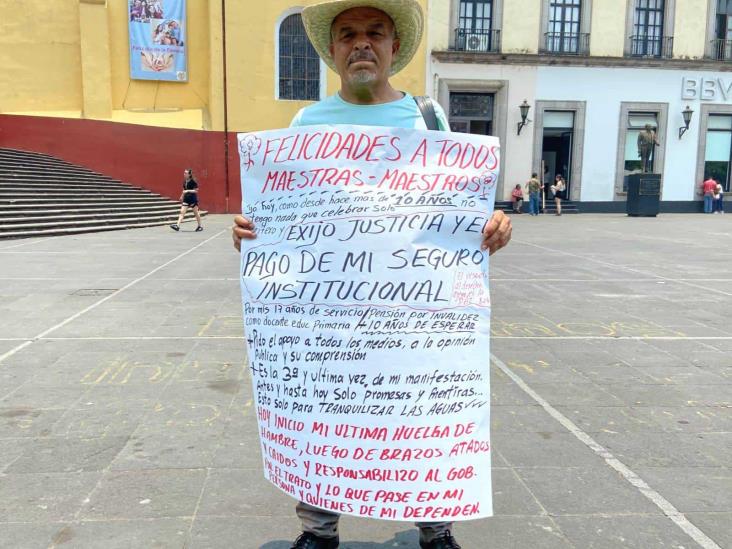 BBV
FELICIDADES A TODOS
MAESTRAS - MAESTROS
Yo hoy, como desde hace más de "10 AÑOS" no
tengo nada que celebrar solo
y EXIJO JUSTICIA Y EL
PAGO DE MI SEGURO
INSTITUCIONAL
El respeto
al derecho
Por mis 17 años de servicio
como docente educ. Primaria
Pensión por INVALIDEZ
+ 10 AÑOS DE ESPERAR
+ Pido el apoyo a todos los medios, a la opinión
Publica y su comprensión
+ Es la 3ª y ultima vez de mi manifestación.
Antes y hasta hoy Solo promesas y mentiras...
Esto solo para TRANQUILIZAR LAS AGUAS
HOY INICIO MI ULTIMA HUELGA DE
HAMBRE, LUEGO DE BRAZOS ATADOS
Y CAIDOS Y RESPONSABILIZO AL GOB.
POR EL TRATO Y LO QUE PASE EN MI
PERSONA Y QUIENES DE MI DEPENDEN.